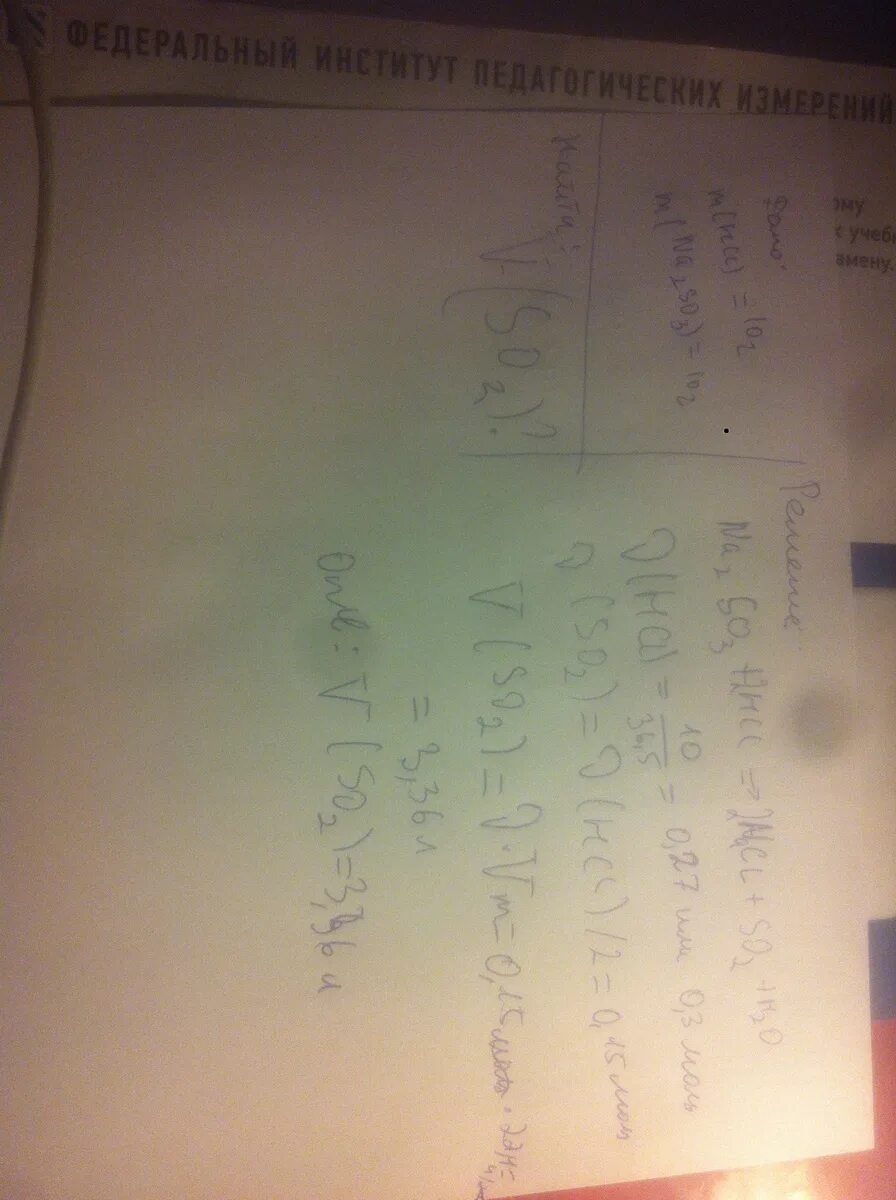 ФЕДЕРАЛЬНЫЙ ИНСТИТУТ ПЕДАГОГИЧЕСКИХ ИЗМЕРЕНИЙ
ому
к учебн
амену.
Дано:
m(HCl) = 10г
m(Na₂SO₃) = 10г
Найти:
V(SO₂)?
Решение:
Na₂SO₃ + 2HCl => 2NaCl + SO₂ + H₂O
ν(HCl) = 10/36,5 = 0,27 или 0,3 моль
ν(SO₂) = ν(HCl)/2 = 0,15 моль
V(SO₂) = ν · Vm = 0,15 моль · 22,4 =
= 3,36 л
Отв: V(SO₂) = 3,36 л